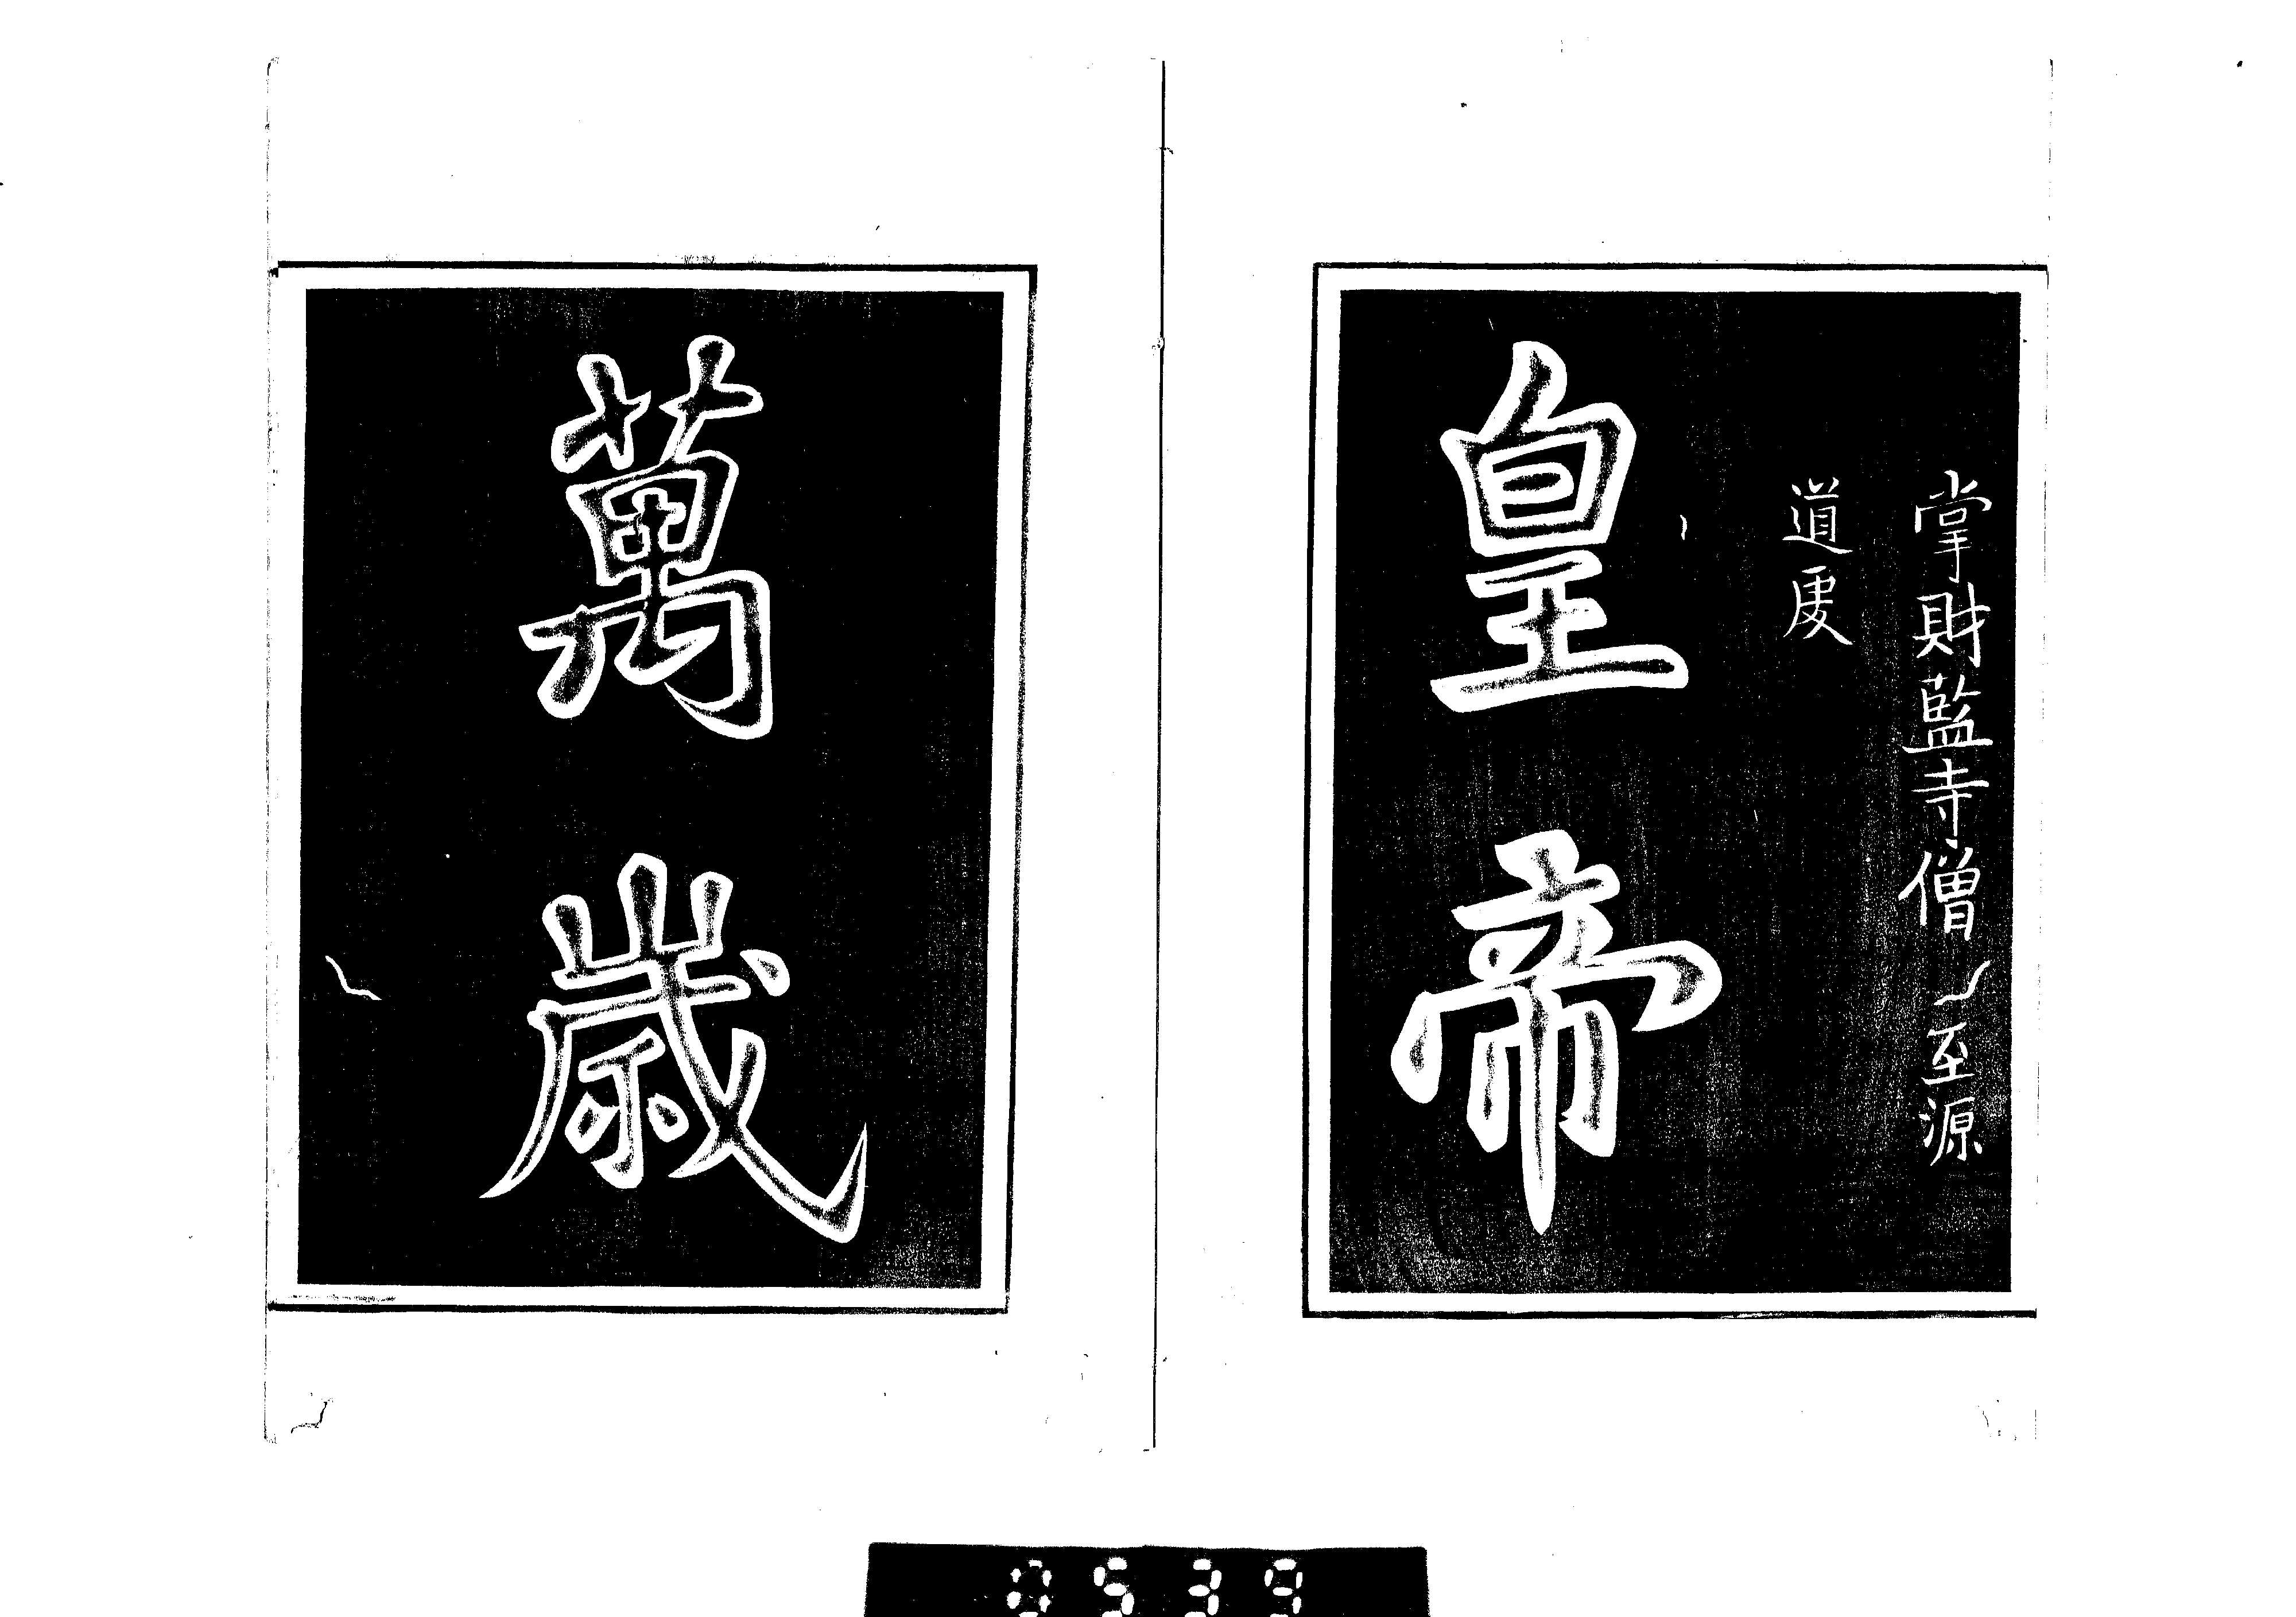 掌財監寺僧 至源
道虔
皇帝
萬歳
0539